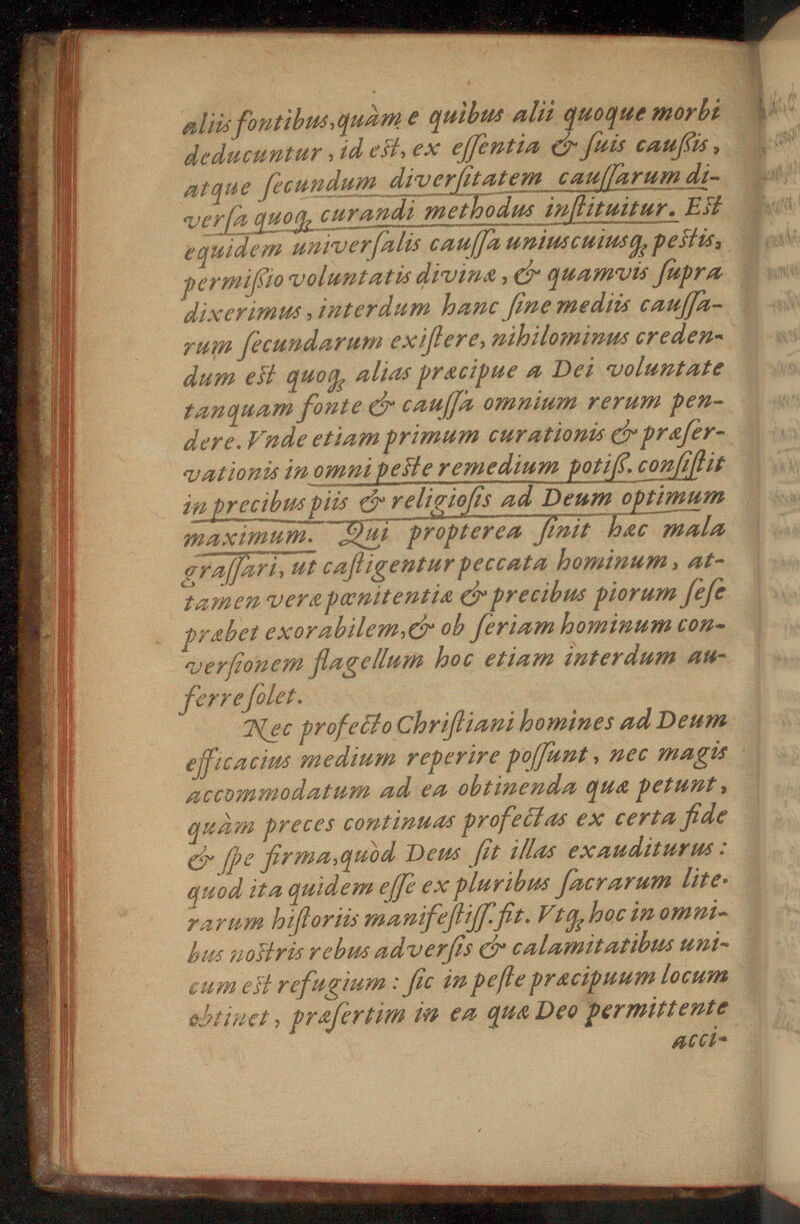 aliis fontibus, quàm e quibus alii quoque morbi
deducuntur, id est, ex essentia & suis caussis,
atque secundum diversitatem caussarum di-
versa quoq; curandi methodus instituitur. Est
equidem universalis caussa uniuscuiusq; pestis,
permissio voluntatis divinæ, & quamvis supra
dixerimus, interdum hanc sine mediis caussa-
rum secundarum existere, nihilominus creden-
dum est quoq; alias præcipue a Dei voluntate
tanquam fonte & caussa omnium rerum pen-
dere. Vnde etiam primum curationis & præser-
vationis in omni peste remedium potiss. consistit
in precibus piis & religiosis ad Deum optimum
maximum. Qui propterea sinit hæc mala
grassari, ut castigentur peccata hominum, at-
tamen veræ pœnitentiæ & precibus piorum sese
præbet exorabilem, & ob seriam hominum con-
versionem flagellum hoc etiam interdum au-
ferre solet.
Nec profecto Christiani homines ad Deum
efficacius medium reperire possunt, nec magis
accommodatum ad ea obtinenda quæ petunt,
quàm preces continuas profectas ex certa fide
& spe firma, quòd Deus sit illas exauditurus:
quod ita quidem esse ex pluribus sacrarum lite-
rarum historiis manifestiss. fit. Vtq; hoc in omni-
bus nostris rebus adversis & calamitatibus uni-
cum est refugium: sic in peste præcipuum locum
obtinet, præsertim in ea quæ Deo permittente
acci-